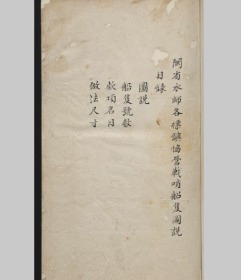 閩省水師各標鎮協營戰哨船隻圖説
目錄
圖説
船隻號數
款項名目
做法尺寸